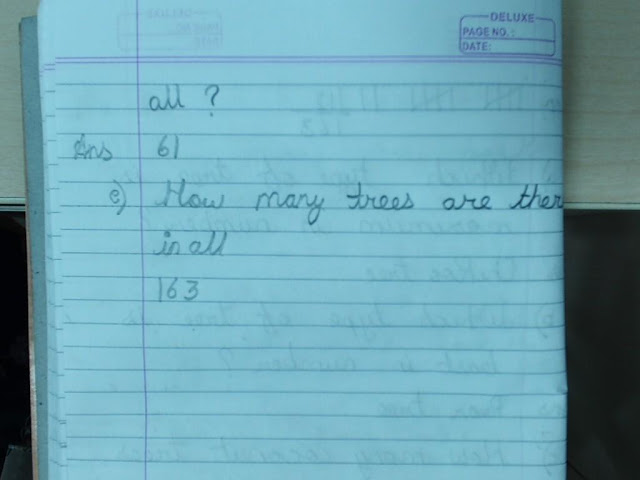 DELUXE
PAGE NO.:
DATE:
all ?
Ans 61
e) How many trees are ther
in all
163